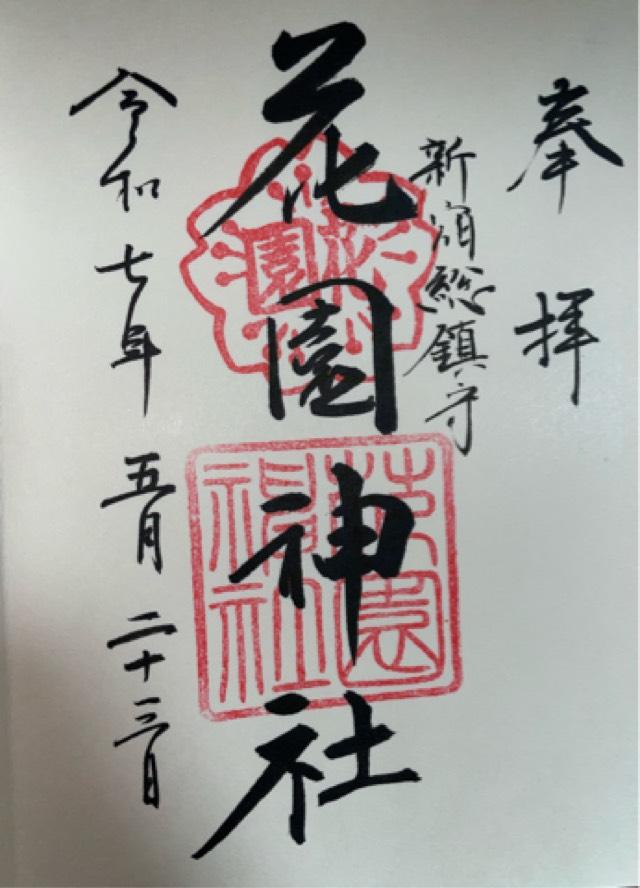 奉拝
新宿総鎮守
花園神社
花園
花園神社
令和七年 五月 二十三日